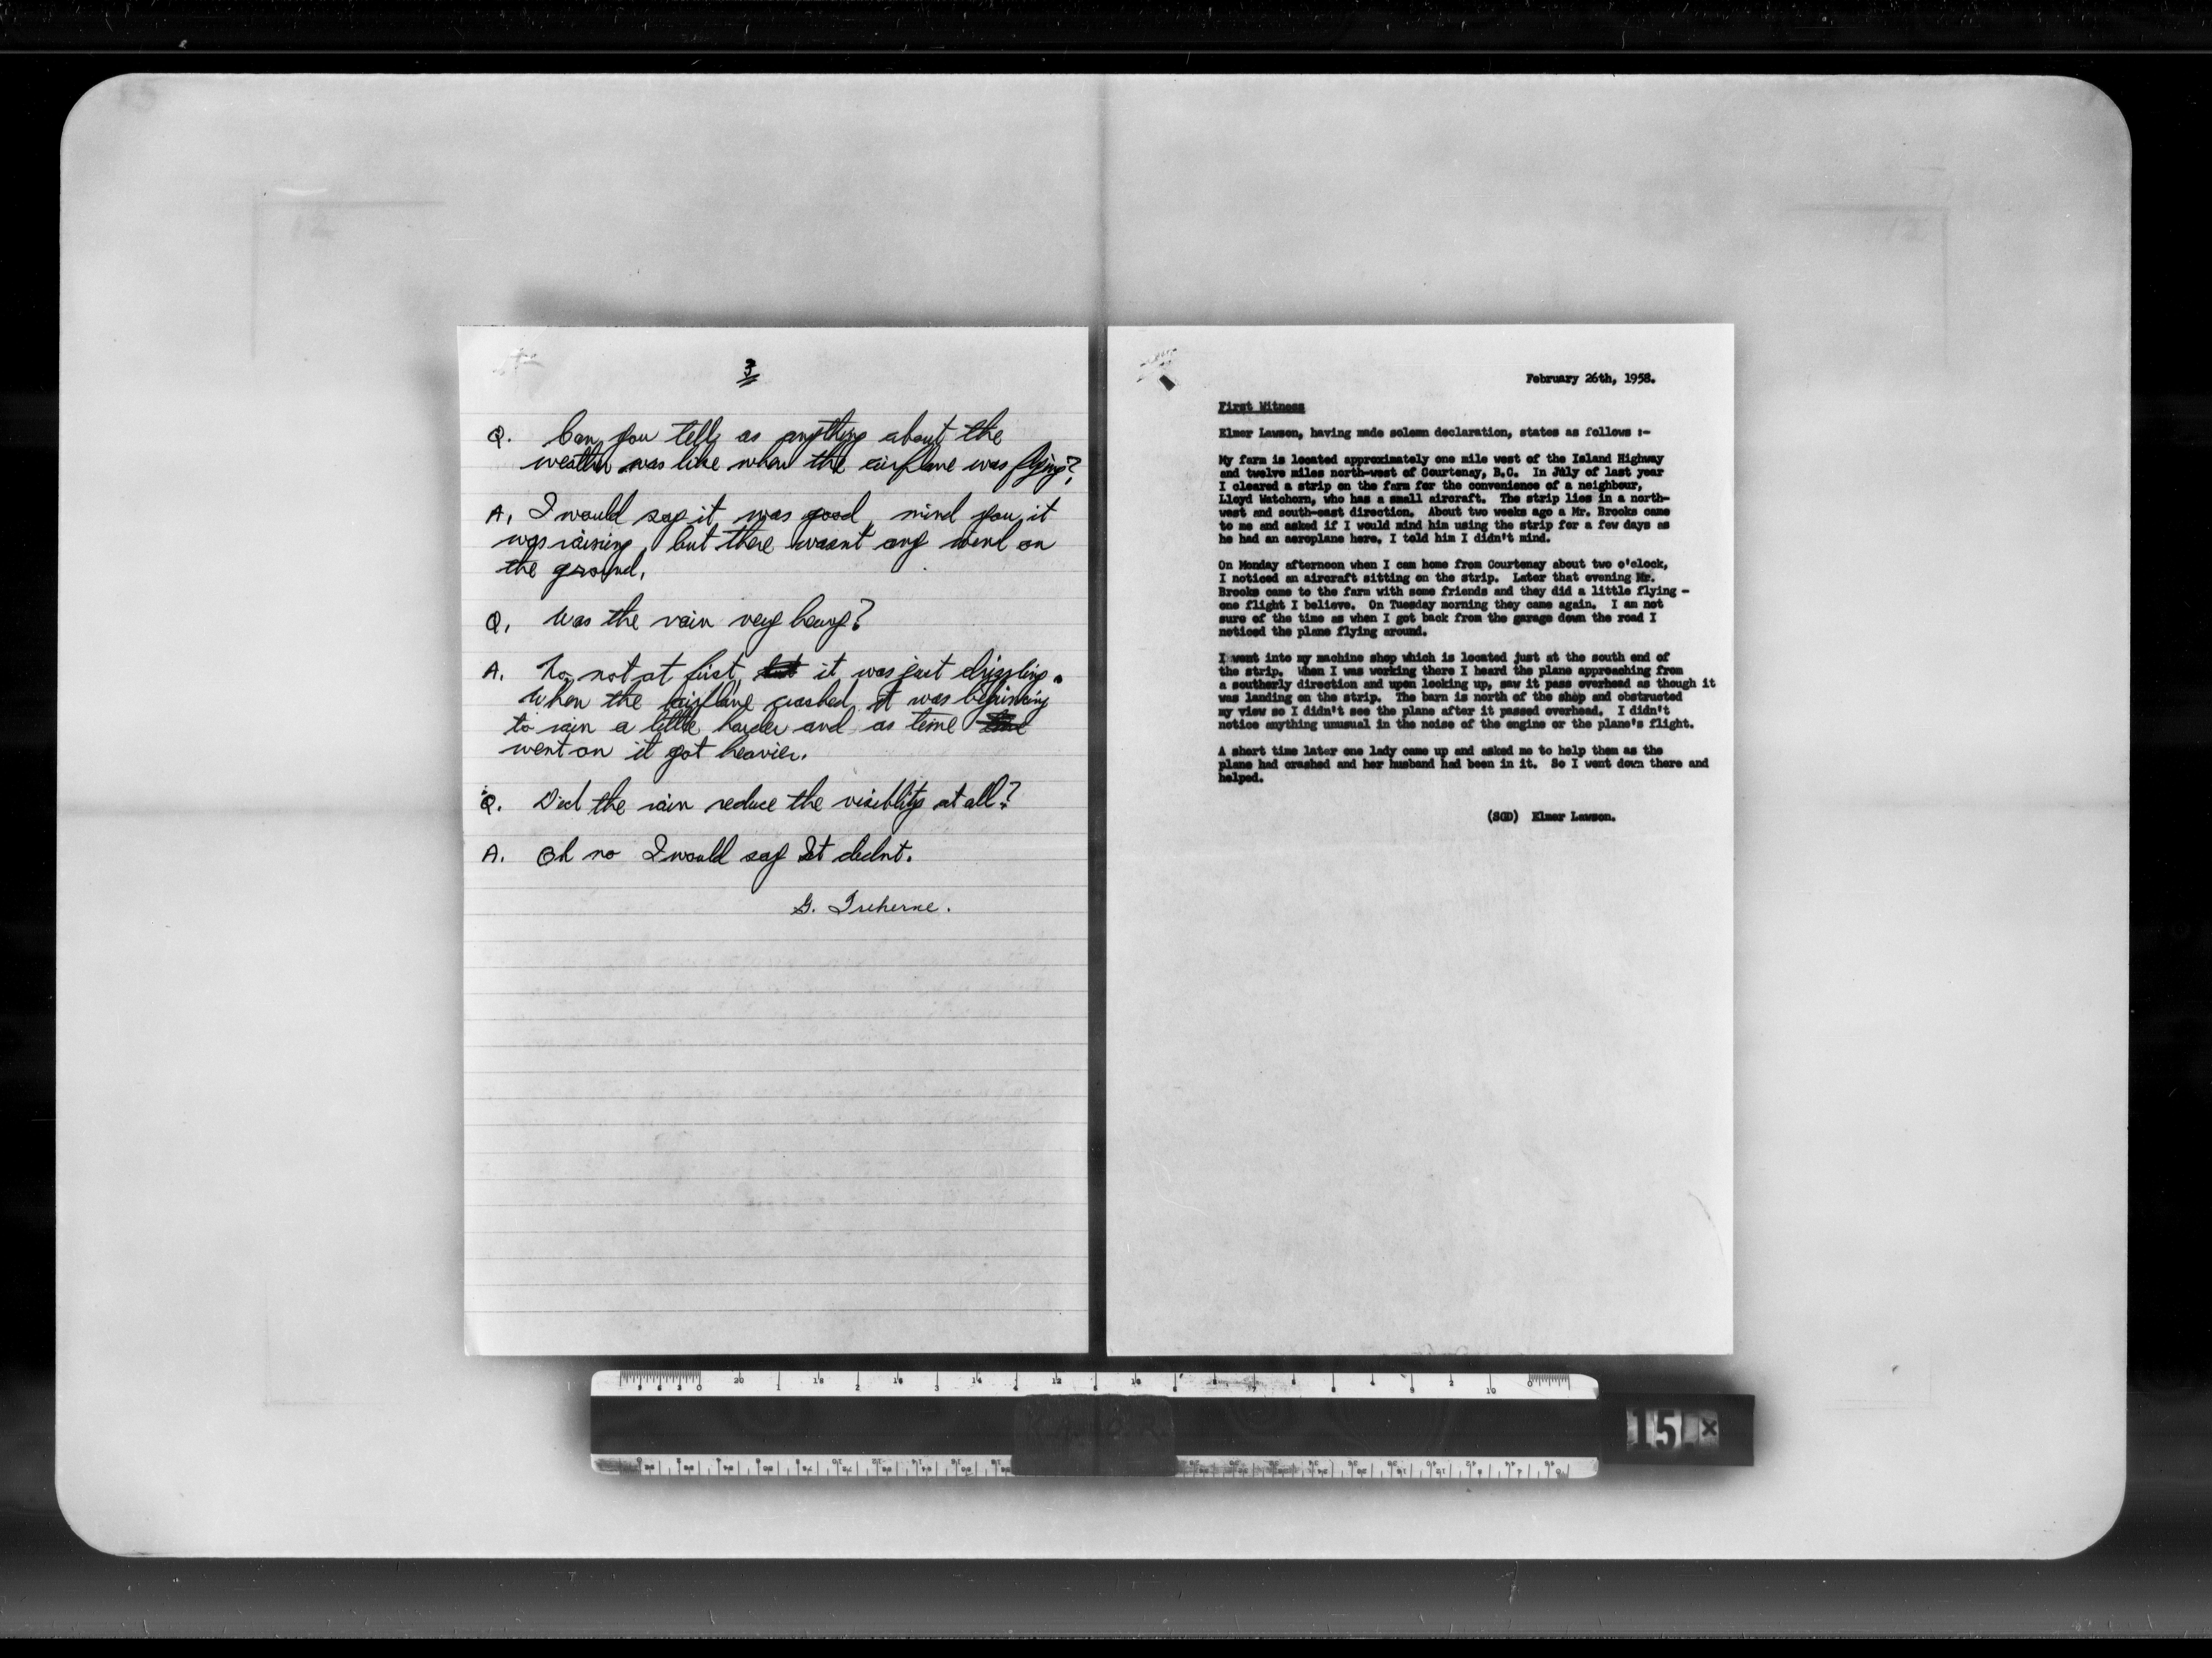 3
Q. Can you tell as anything about the
weather was like when the airplane was flying?
A. I would say it was good, mind you, it
was raining, but there wasnt any wind on
the ground.
Q. Was the rain very heavy?
A. No, not at first, it was just drizzling.
When the airplane crashed it was beginning
to rain a little harder and as time
went on it got heavier.
Q. Did the rain reduce the visiblity at all?
A. Oh no I would say It didnt.
G. Treherne.
February 26th, 1958.
First Witness
Elmer Lawson, having made solemn declaration, states as follows :-
My farm is located approximately one mile west of the Island Highway
and twelve miles north-west of Courtenay, B.C. In July of last year
I cleared a strip on the farm for the convenience of a neighbour,
Lloyd Watchorn, who has a small aircraft. The strip lies in a north-
west and south-east direction. About two weeks ago a Mr. Brooks came
to me and asked if I would mind him using the strip for a few days as
he had an aeroplane here. I told him I didn't mind.
On Monday afternoon when I cam home from Courtenay about two o'clock,
I noticed an aircraft sitting on the strip. Later that evening Mr.
Brooks came to the farm with some friends and they did a little flying -
one flight I believe. On Tuesday morning they came again. I am not
sure of the time as when I got back from the garage down the road I
noticed the plane flying around.
I went into my machine shop which is located just at the south end of
the strip. When I was working there I heard the plane approaching from
a southerly direction and upon looking up, saw it pass overhead as though it
was landing on the strip. The barn is north of the shop and obstructed
my view so I didn't see the plane after it passed overhead. I didn't
notice anything unusual in the noise of the engine or the plane's flight.
A short time later one lady came up and asked me to help them as the
plane had crashed and her husband had been in it. So I went down there and
helped.
(SGD) Elmer Lawson.
15 x